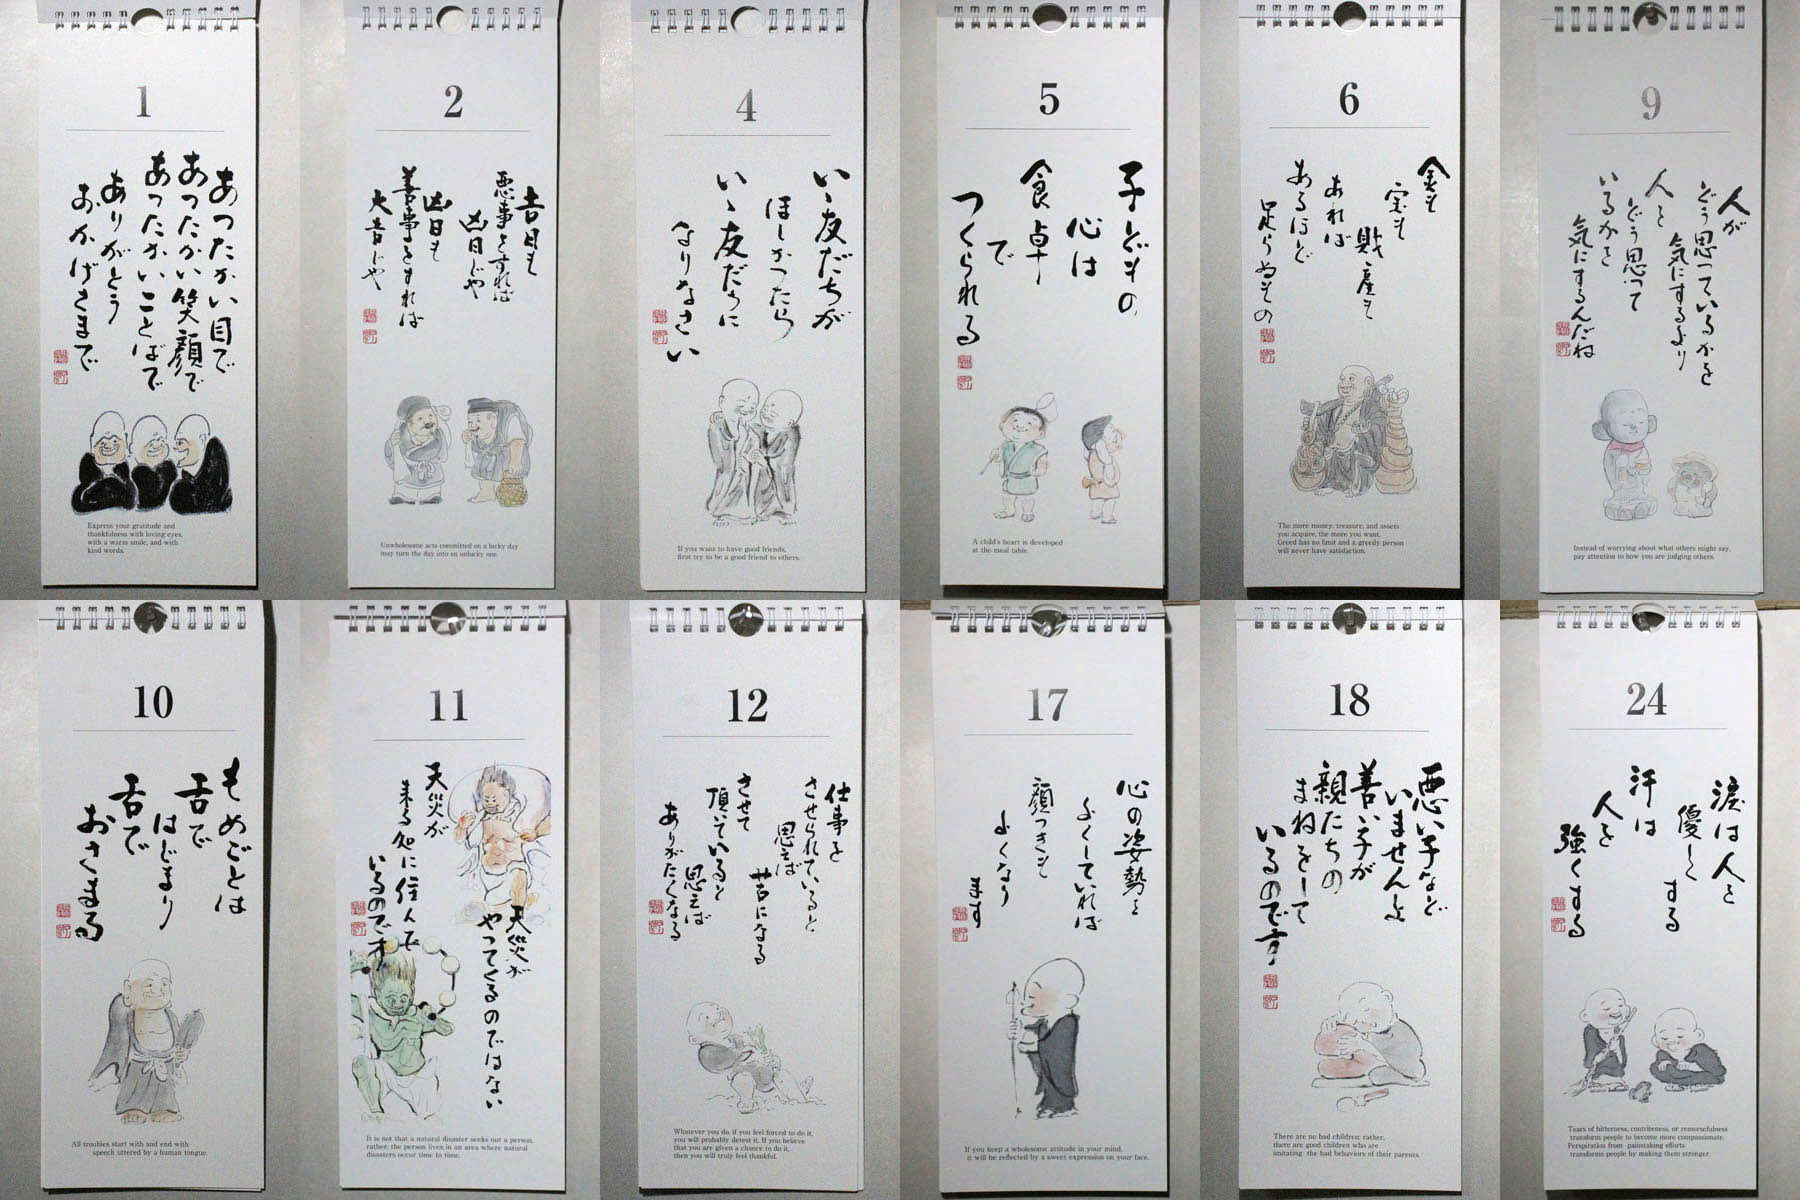 1
あったかい目で
あったかい笑顔で
あったかいことばで
ありがとう
おかげさまで
Express your gratitude and
thankfulness with loving eyes,
with a warm smile, and with
kind words.
2
吉日も
悪事をすれば
凶日じゃ
凶日も
善事をすれば
大吉じゃ
Unwholesome acts committed on a lucky day
may turn the day into an unlucky one.
4
いゝ友だちが
ほしかったら
いゝ友だちに
なりなさい
If you want to have good friends,
first try to be a good friend to others.
5
子どもの
心は
食卓
で
つくられる
A child's heart is developed
at the meal table.
6
金も
宝も
財産も
あれば
あるほど
足らぬもの
The more money, treasure, and assets
you acquire, the more you want.
Greed has no limit and a greedy person
will never have satisfaction.
9
人が
どう思っているかを
気にするより
人を
どう思って
いるかを
気にするんだね
Instead of worrying about what others might say,
pay attention to how you are judging others.
10
もめごとは
舌で
はじまり
舌で
おさまる
All troubles start with and end with
speech uttered by a human tongue.
11
天災が
やってくるのではない
天災が
来る処に住んで
いるのです
It is not that a natural disaster seeks out a person,
rather, the person lives in an area where natural
disasters occur time to time.
12
仕事を
させられていると
思えば
苦になる
させて
頂いていると
思えば
ありがたくなる
Whatever you do, if you feel forced to do it,
you will probably detest it. If you believe
that you are given a chance to do it,
then you will truly feel thankful.
17
心の姿勢を
よくしていれば
顔つきも
よくなり
ます
If you keep a wholesome attitude in your mind,
it will be reflected by a sweet expression on your face.
18
悪い子など
いませんよ
善い子が
親たちの
まねをして
いるのです
There are no bad children; rather,
there are good children who are
imitating the bad behaviors of their parents.
24
涙は人を
優しく
する
汗は
人を
強くする
Tears of bitterness, contriteness, or remorsefulness
transform people to become more compassionate.
Perspiration from painstaking efforts
transforms people by making them stronger.